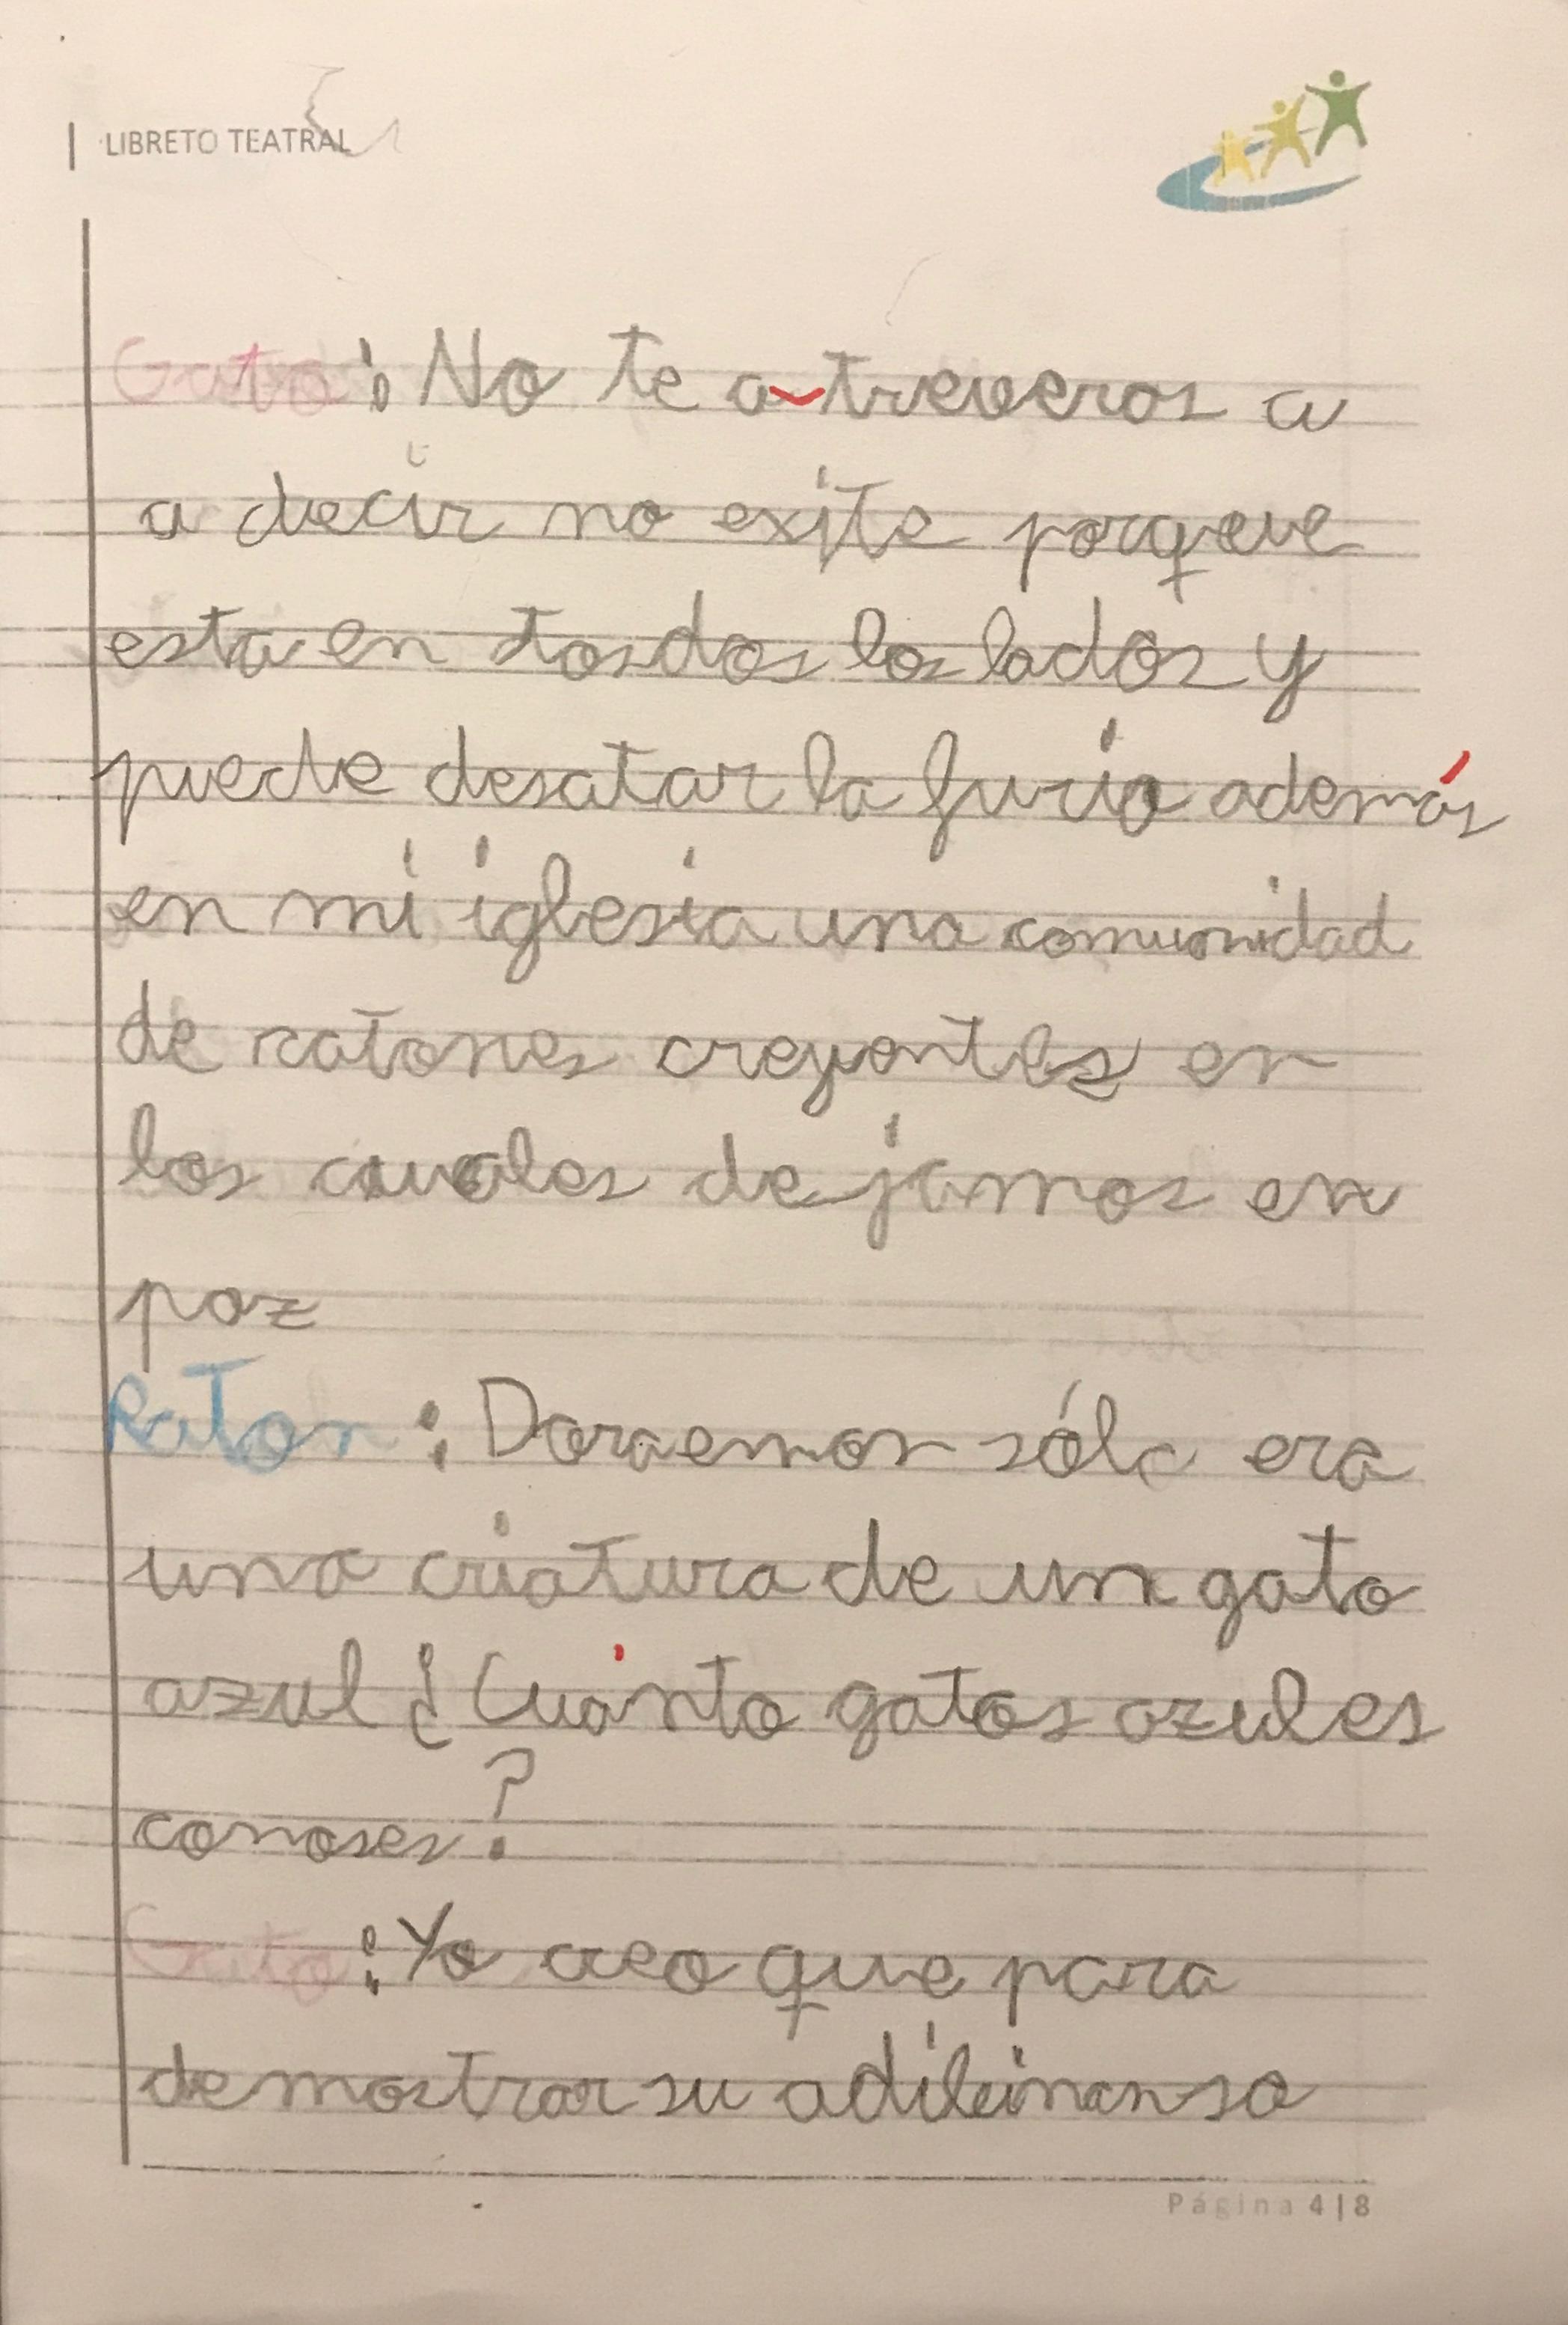 LIBRETO TEATRAL
Gato: No te atreveros a
a decir no exite porqeue
esta en tosdos los lados y
puede desatar la furia además
en mi iglesia una comunidad
de ratones creyentes en
los cuales dejamos en
paz
Raton: Doraemon sólo era
una criatura de un gato
azul ¿Cuánto gatos azules
conoses?
Gato: Yo creo que para
demostrar su
Página 4|8